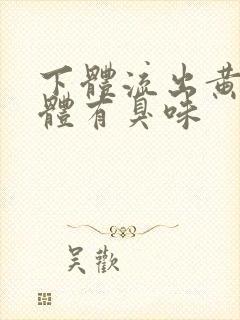 下體流出黄
體有臭味
吴歡